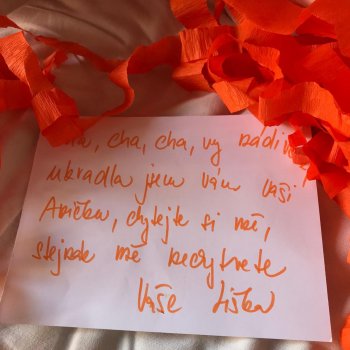 cha, cha, vy
ukradla jsem vám Vaši
Aničku, chytejte si mě,
stejně mě nechytnete
Vaše Liška